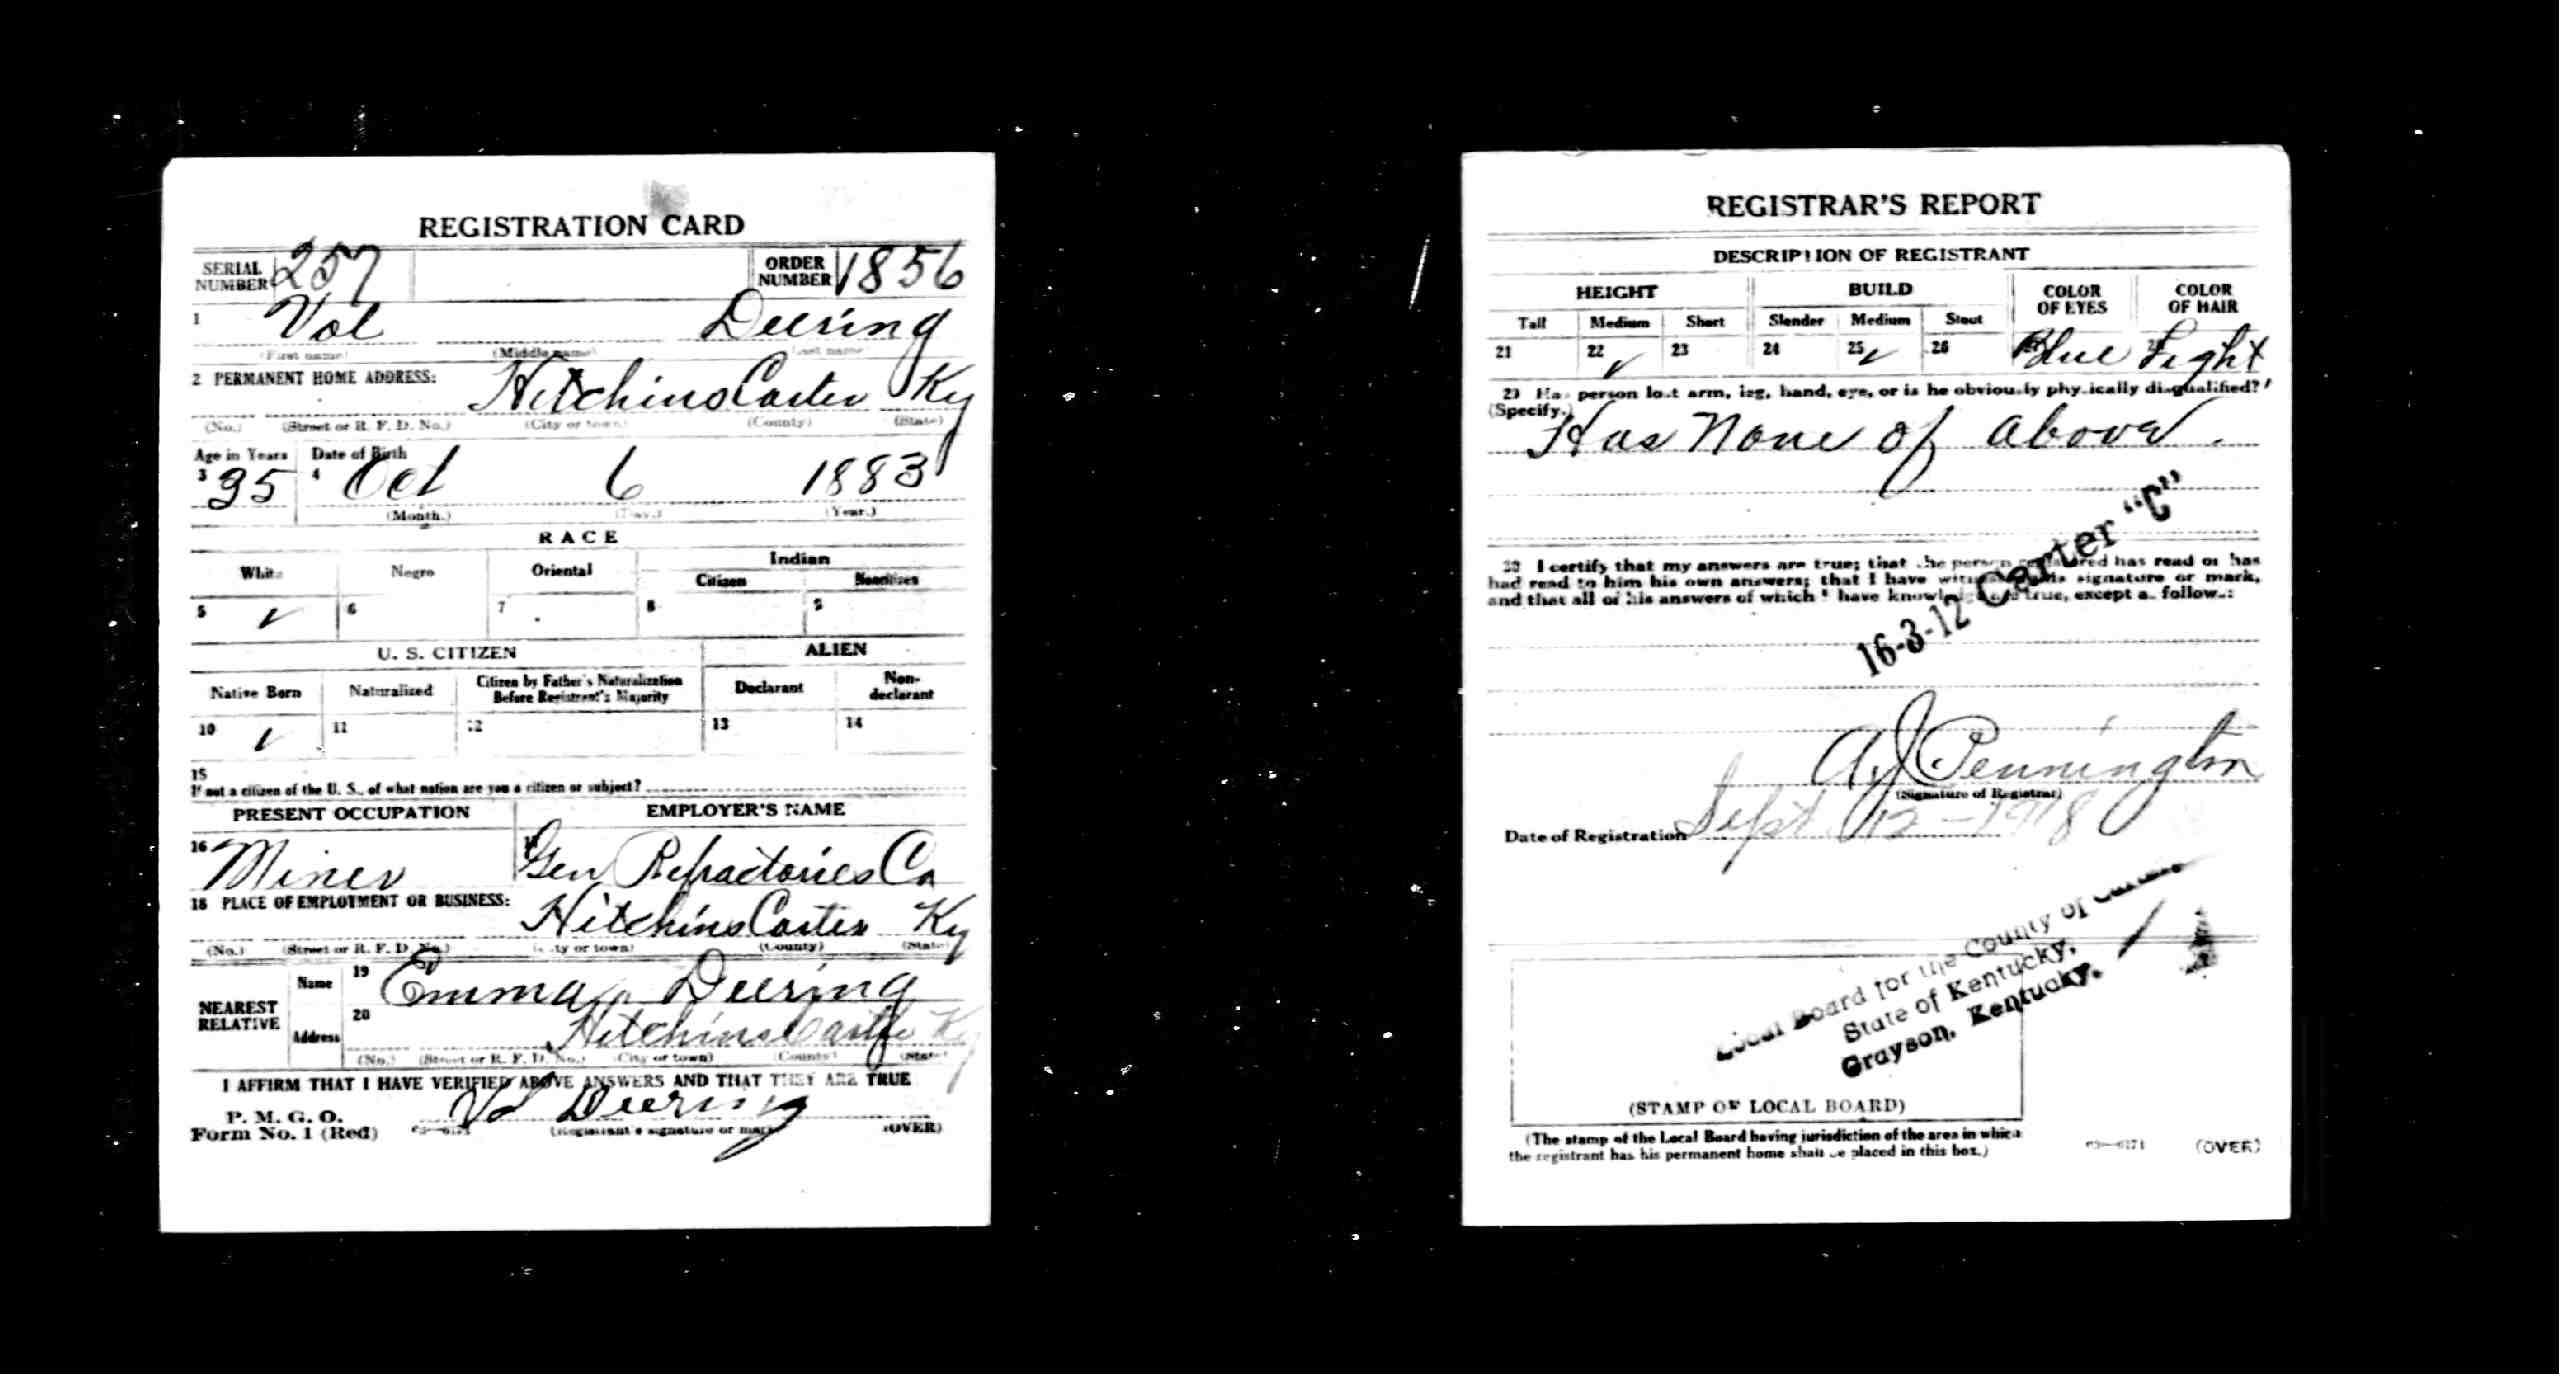 REGISTRATION CARD
SERIAL NUMBER 257 ORDER NUMBER 1856
1 Vol Deering
(First name) (Middle name) (Last name)
2 PERMANENT HOME ADDRESS: Hitchins Carter Ky
(No.) (Street or R. F. D. No.) (City or town) (County) (State)
Age in Years Date of Birth
3 35 4 Oct 6 1883
(Month.) (Day.) (Year.)
RACE
White Negro Oriental Indian
Citizen Noncitizen
5 ✓ 6 7 8 9
U. S. CITIZEN ALIEN
Native Born Naturalized Citizen by Father's Naturalization Before Registrant's Majority Declarant Non-declarant
10 ✓ 11 12 13 14
15
If not a citizen of the U. S., of what nation are you a citizen or subject?
PRESENT OCCUPATION EMPLOYER'S NAME
16 Miner 17 Gen Refractories Co
18 PLACE OF EMPLOYMENT OR BUSINESS: Hitchins Carter Ky
(No.) (Street or R. F. D. No.) (City or town) (County) (State)
NEAREST RELATIVE Name 19 Emma Deering
Address 20 Hitchins Carter Ky
(No.) (Street or R. F. D. No.) (City or town) (County) (State)
I AFFIRM THAT I HAVE VERIFIED ABOVE ANSWERS AND THAT THEY ARE TRUE
P. M. G. O.
Form No. 1 (Red) Vol Deering
(Registrant's signature or mark) (OVER)
REGISTRAR'S REPORT
DESCRIPTION OF REGISTRANT
HEIGHT BUILD COLOR OF EYES COLOR OF HAIR
Tall Medium Short Slender Medium Stout
21 22 ✓ 23 24 25 ✓ 26 Blue Light
29 Has person lost arm, leg, hand, eye, or is he obviously physically disqualified?
(Specify.) Has None of above.
30 I certify that my answers are true; that the person registered has read or has
had read to him his own answers; that I have witnessed his signature or mark,
and that all of his answers of which I have knowledge are true, except as follows:
16-3-12 Carter "C"
A J Pennington
(Signature of Registrar)
Date of Registration Sept 12-1918
Local Board for the County of Carter,
State of Kentucky,
Grayson, Kentucky.
(STAMP OF LOCAL BOARD)
(The stamp of the Local Board having jurisdiction of the area in which
the registrant has his permanent home shall be placed in this box.)
(OVER)